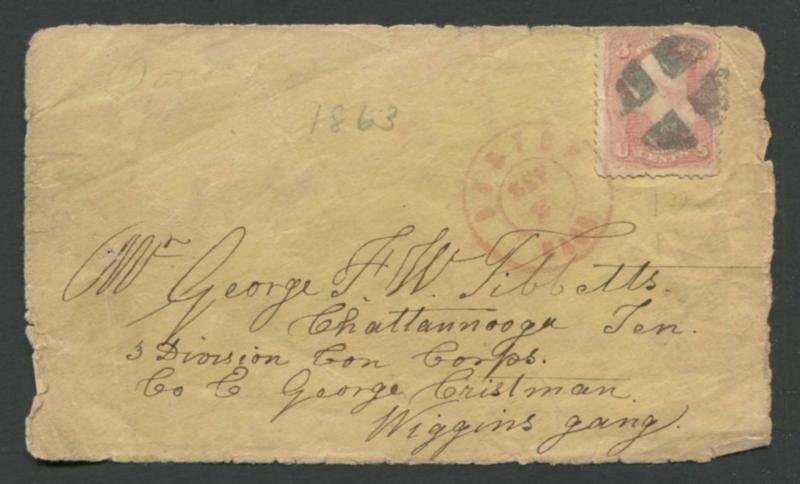 1863
3
U 3 CENTS
SEP
4
Mr George F. W. Tibbetts.
Chattannooga Ten.
3 Division Con Corps.
Co E George Cristman
Wiggins gang.